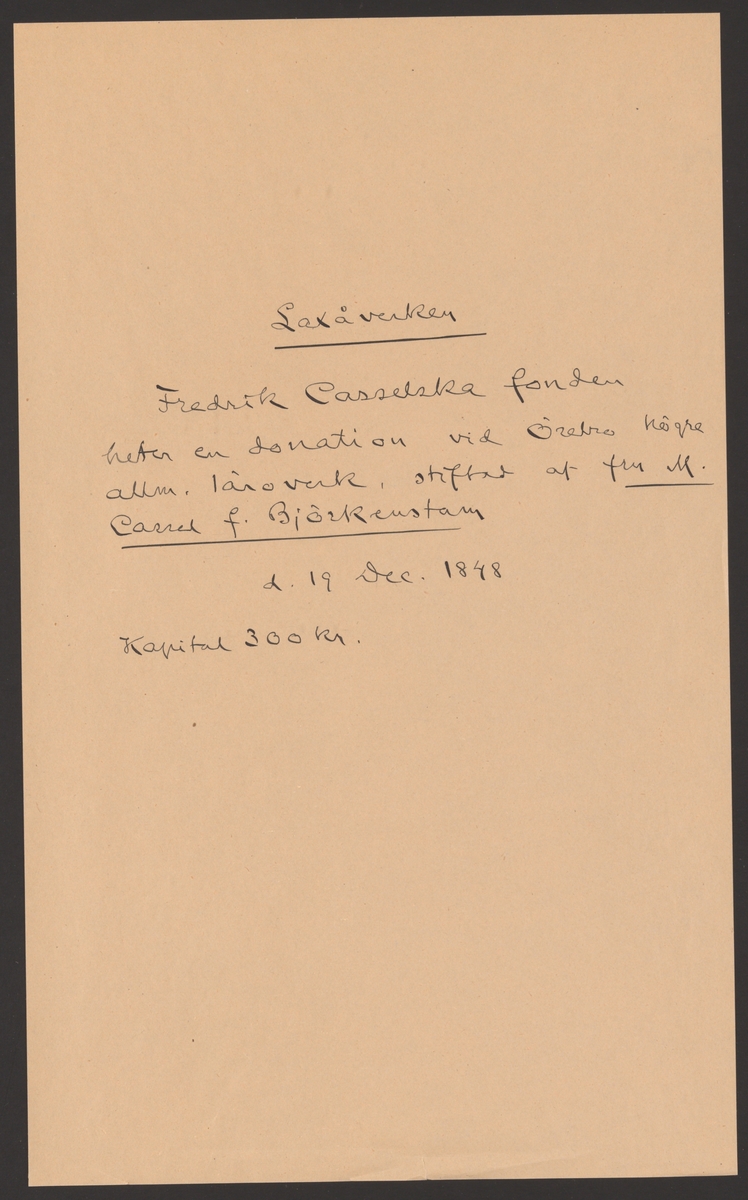 Laxåverken
Fredrik Casselska fonden
heter en donation vid Örebro högre
allm. läroverk, stiftad af fru M.
Cassel f. Björkenstam
d. 19 Dec. 1848
Kapital 300 kr.